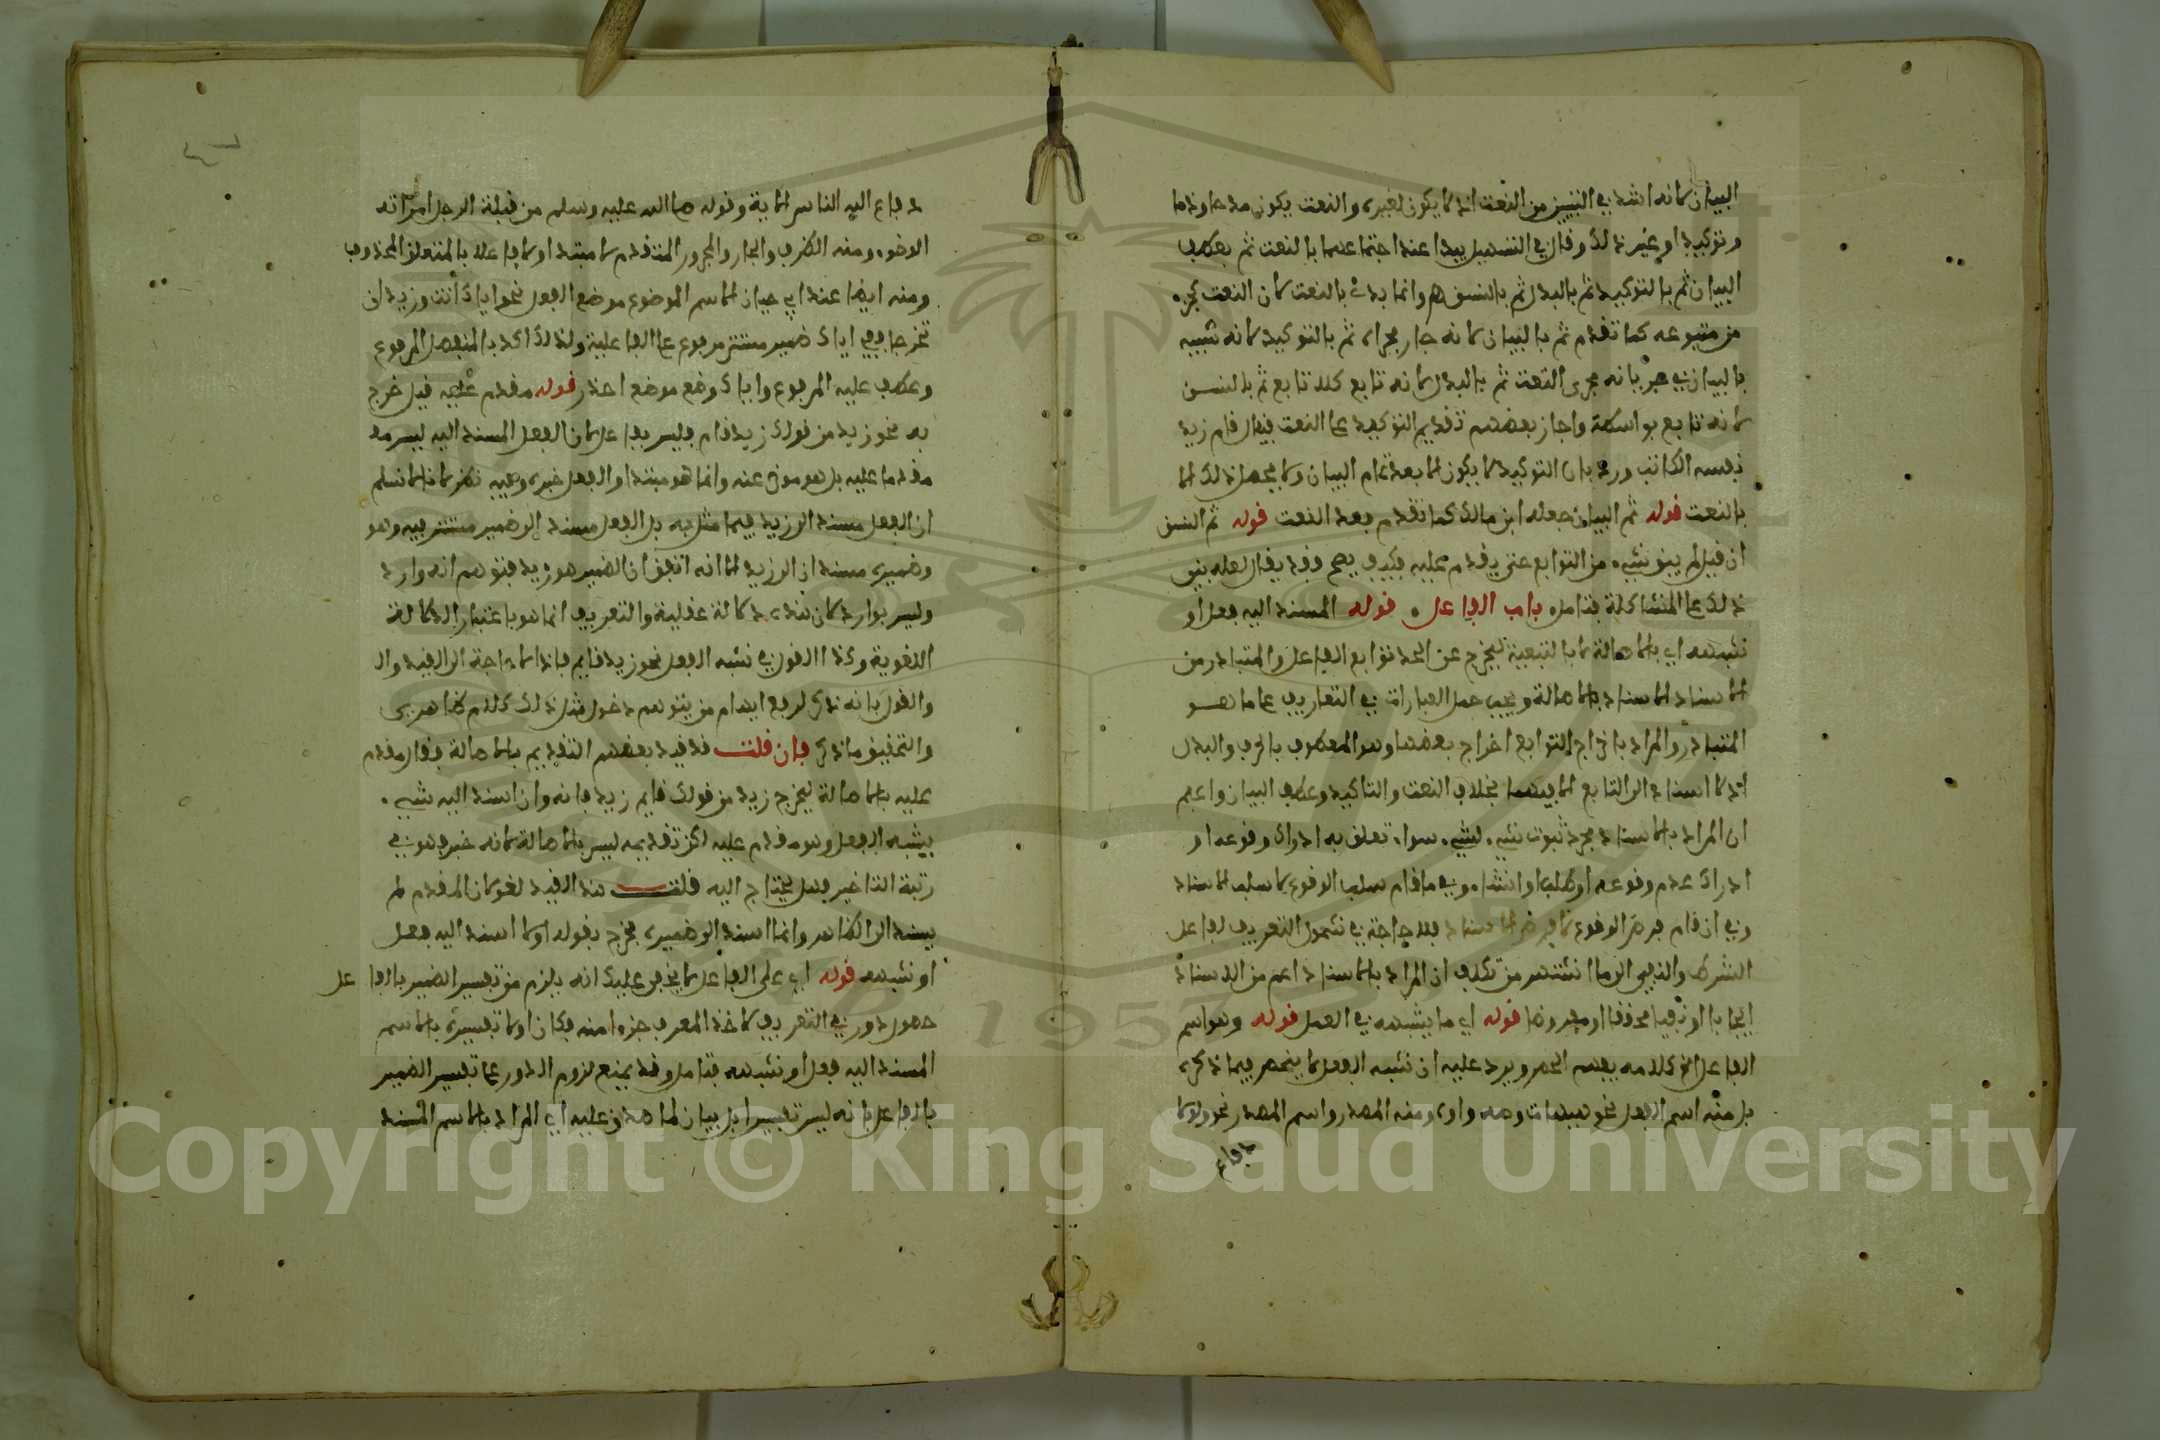 البيان لانه اشد في التبيين من النعت اذ لا يكون لغيره والنعت يكون مدحا وذما
وتوكيدا وغير ذلك وقال في التسهيل يبدا عند اجتماعهما بالنعت ثم بعطف
البيان ثم بالتوكيد ثم بالبدل ثم بالنسق وانما بدئ بالنعت لان النعت كجزء
من متبوعه كما تقدم ثم بالبيان لانه جار مجراه ثم بالتوكيد لانه شبيه
بالبيان في جريانه مجرى النعت ثم بالبدل لانه تابع كلا تابع ثم بالنسق
لانه تابع بواسطة واجاز بعضهم تقديم التوكيد على النعت فيقال قام زيد
نفسه الكاتب ورد بان التوكيد لا يكون الا بعد تمام البيان ولا يحصل ذلك الا
بالنعت قوله ثم البيان جعله ابن مالك كما تقدم بعد النعت قوله ثم النسق
ان قيل لم يبق شيء من التوابع حتى يقدم عليه فكيف يصح فقد يقال لعله بنى
ذلك على المشاكلة فتامل باب الفاعل قوله المسند اليه فعل او
شبهه اي بالاصالة لا بالتبعية ليخرج عن الحد توابع الفاعل والمتبادر من
الاسناد الاسناد بالاصالة ويجب حمل العبارات في التعاريف على ما هو
المتبادر والمراد باخراج التوابع اخراج بعضها وهو المعطوف بالحرف والبدل
اذ لا اسناد الى التابع الا فيهما بخلاف النعت والتاكيد وعطف البيان واعلم
ان المراد بالاسناد مجرد ثبوت شيء لشيء سواء تعلق به ادراك وقوعه او
ادراك عدم وقوعه او طلب او انشاء وفي ما قام سلب الوقوع لا سلب الاسناد
وفي ان قام فرض الوقوع لا فرض الاسناد فلا حاجة في شمول التعريف لفاعل
الشرط والنفي الى ما اشتهر من تكلف ان المراد بالاسناد اعم من الاسناد
ايجابا او نفيا محققا او مفروضا قوله اي ما يشبهه في العمل قوله وهو اسم
الفاعل الخ كلامه يفهم الحصر ويرد عليه ان شبه الفعل لا ينحصر فيما ذكره
بل منه اسم الفعل نحو هيهات وصه واوه ومنه المصدر واسم المصدر نحو ولولا
دفاع
دفاع اليه الناس الاية وقوله صلى الله عليه وسلم من قبلة الرجل امراته
الوضوء ومنه الظرف والجار والمجرور المتقدم لا مبتدا ولا فاعلا بالمتعلق المحذوف
ومنه ايضا عند ابي حيان الاسم الموضوع موضع الفعل نحو اياك أنت وزيد ان
تخرجا ففي اياك ضمير مستتر مرفوع على الفاعلية ولذلك اكد بالمنفصل المرفوع
وعطف عليه المرفوع واياك وضع موضع احذر قوله مقدم عليه قيل خرج
به نحو زيد من قولك زيد قام فليس بفاعل لان الفعل المسند اليه ليس
مقدما عليه بل هو موخر عنه وانما هو مبتدا والفعل خبره وفيه نظر لانا لا نسلم
ان الفعل مسند الى زيد فيما مثل به بل الفعل مسند الى ضمير مستتر فيه وهو
وضميره مسند ان الى زيد الا انه اتفق ان الضمير هو زيد فتوهم انه وارد
وليس بوارد لان هذه دلالة عقلية والتعريف انما هو باعتبار الدلالة
اللغوية وكذا القول في شبه الفعل نحو زيد قايم فاذا لا حاجة الى القيد
والقول بانه ذكر لدفع ايهام من يتوهم دخول مثل ذلك كلام ظاهري
والتحقيق ما ذكر فان قلت قد قيد بعضهم التقديم بالاصالة فقال مقدم
عليه بالاصالة ليخرج زيد من قولك قايم زيد فانه وان اسند اليه شيء
يشبه الفعل وهو مقدم عليه لكن تقديمه ليس بالاصالة لانه خبر فهو في
رتبة التاخير فهل يحتاج اليه قلت هذا القيد لغو لان المقدم لم
يسند الى الظاهر وانما اسند الى ضميره فخرج بقوله اولا اسند اليه فعل
او شبهه قوله اي على الفاعل لا يخفى عليك انه يلزم من تفسير الضمير بالفاعل
حصول دور في التعريف لاخذ المعرف جزءا منه فكان اولا تفسيره بالاسم
المسند اليه فعل او شبهه فتامل وقد يمنع لزوم الدور على تفسير الضمير
بالفاعل بانه ليس تفسيرا بل بيان لما صدق عليه اي المراد بالاسم المسند